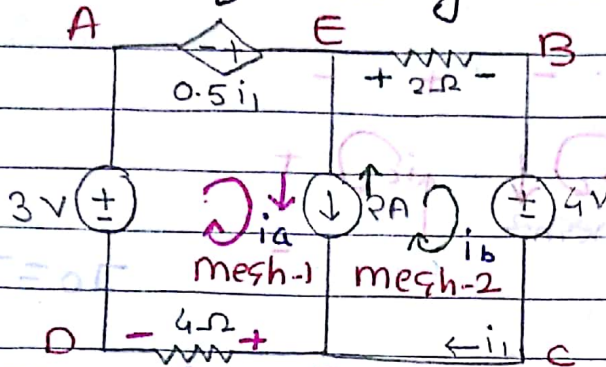 A
E
B
- +
0.5 i₁
+ 2Ω -
3V
+
-
ia
↓
2A
ib
+
-
4V
mesh-1
mesh-2
D
- 4Ω +
←i₁
C